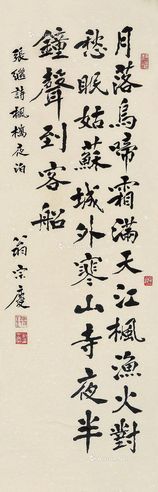 月落烏啼霜滿天江楓漁火對
愁眠姑蘇城外寒山寺夜半
鐘聲到客船
張繼詩楓橋夜泊
翁宗慶